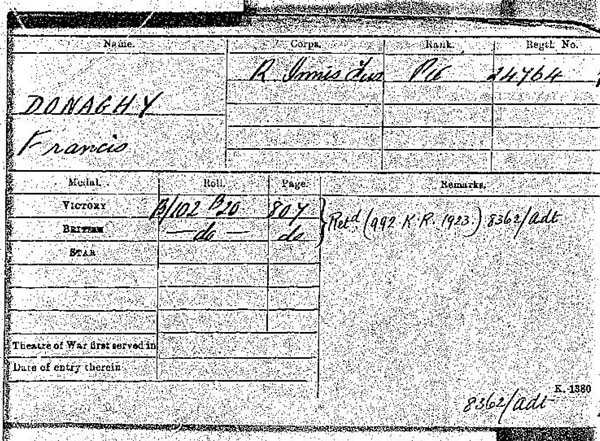 Name. Corps. Rank. Regtl. No.
R Innis Fus Pte 24764
DONAGHY
Francis
Medal. Roll. Page. Remarks.
VICTORY B/102 B20 807 Retd. (992 K.R. 1923.) 8362/adt
BRITISH do do
STAR
Theatre of War first served in
Date of entry therein
K. 1380
8362/adt